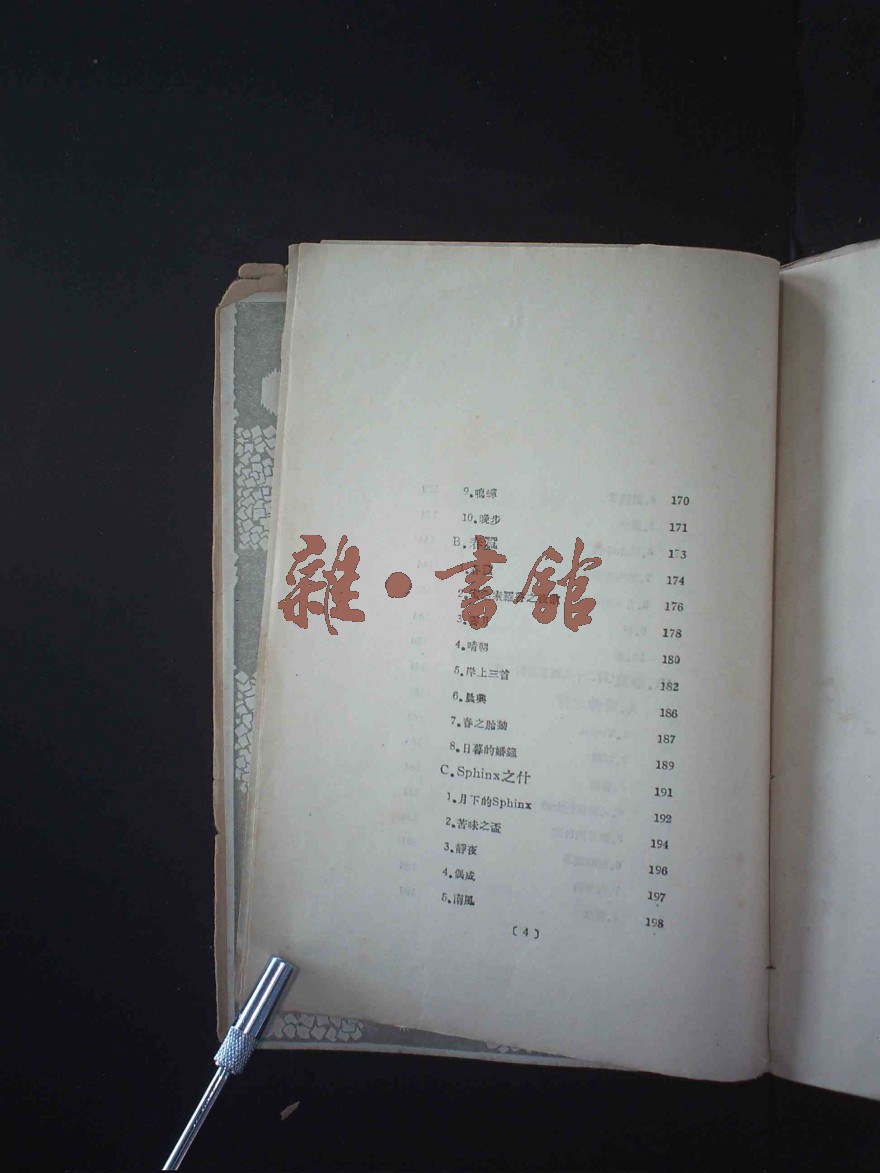 9.鳴蟬 170
10.晚步 171
B.春蠶 173
174
2. 之 176
3. 178
4.晴朝 180
5.岸上三首 182
6.晨興 186
7.春之胎動 187
8.日暮的婚筵 189
C.Sphinx之什 191
1.月下的Sphinx 192
2.苦味之盃 194
3.靜夜 196
4.偶成 197
5.南風 198
〔4〕
雜·書館